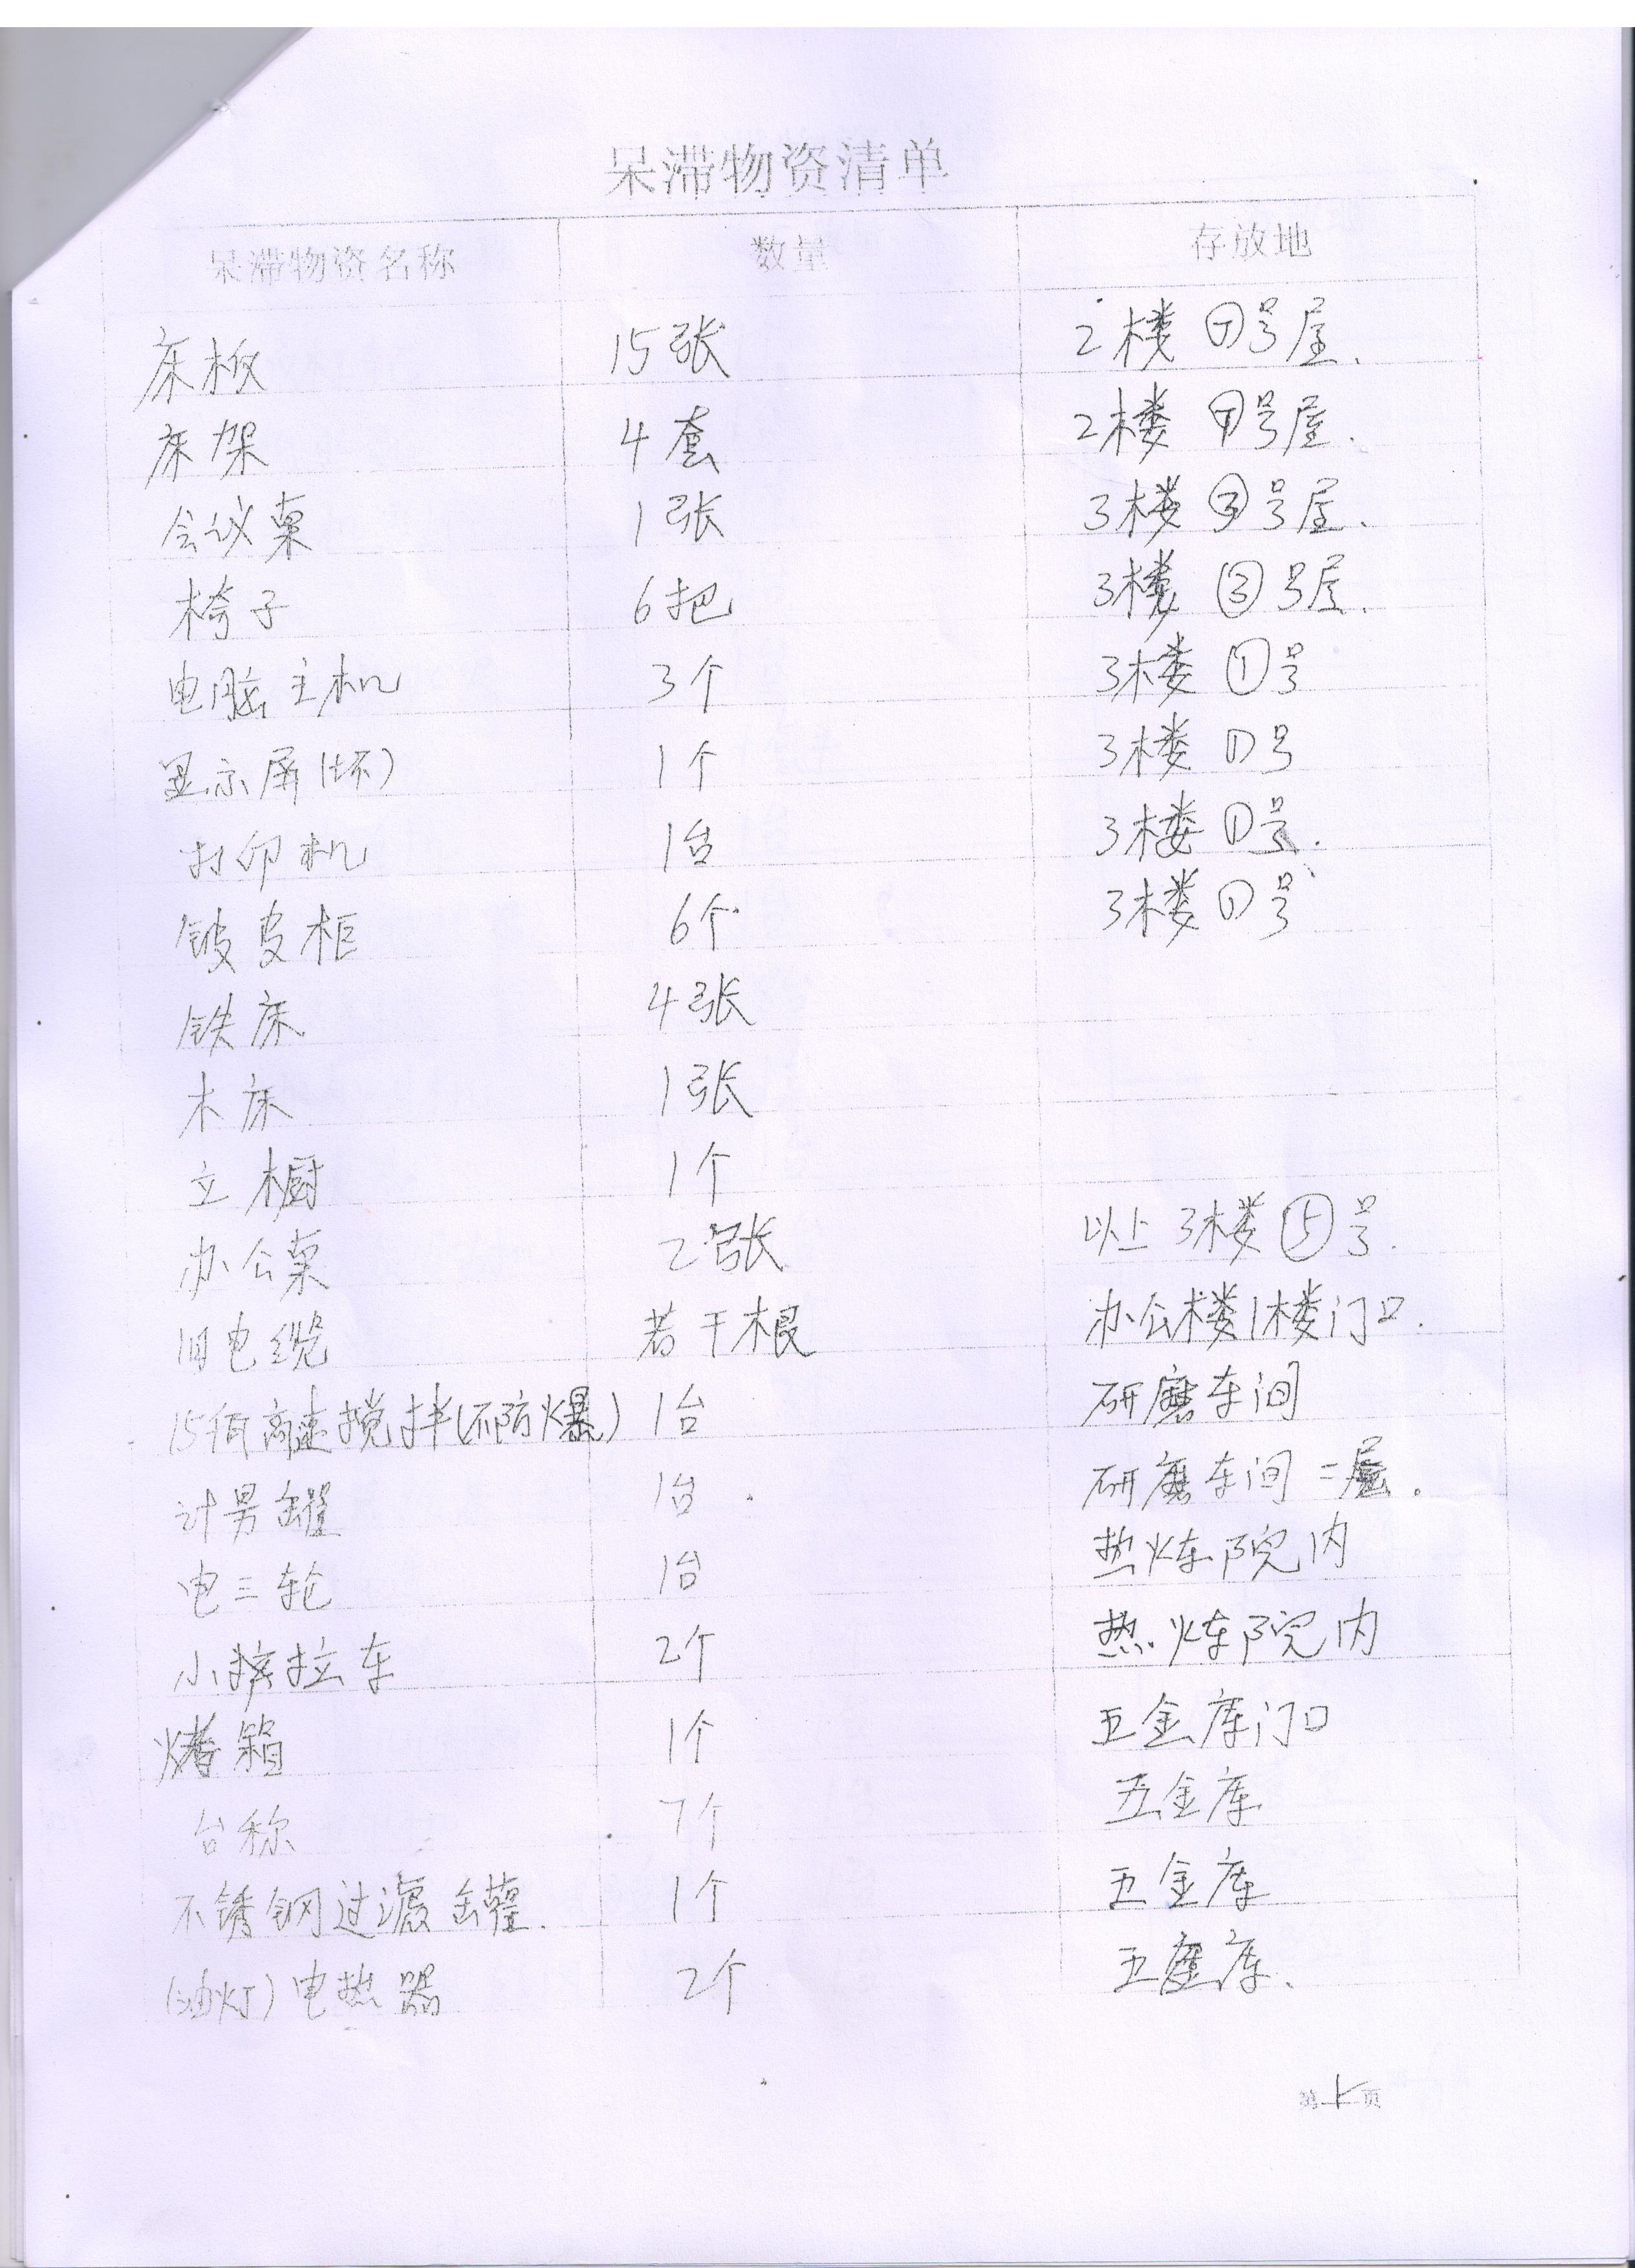 呆滞物资清单
呆滞物资名称 数量 存放地
床板 15张 2楼⑦号屋.
床架 4套 2楼⑦号屋.
会议桌 1张 3楼③号屋.
椅子 6把 3楼③号屋.
电脑主机 3个 3楼①号
显示屏(坏) 1个 3楼①号
打印机 1台 3楼①号.
铍皮柜 6个 3楼①号
铁床 4张
木床 1张
立橱 1个
办公桌 2张 以上3楼⑤号.
旧电缆 若干根 办公楼1楼门口.
高速搅拌(不防爆) 1台 研磨车间
罐 1台 研磨车间二层.
电三轮 1台 热炼院内
小拉车 2个 热炼院内
烤箱 1个 五金库门口
台称 7个 五金库
不锈钢过滤罐. 1个 五金库
(油灯)电热器 2个 五金库.
第 页